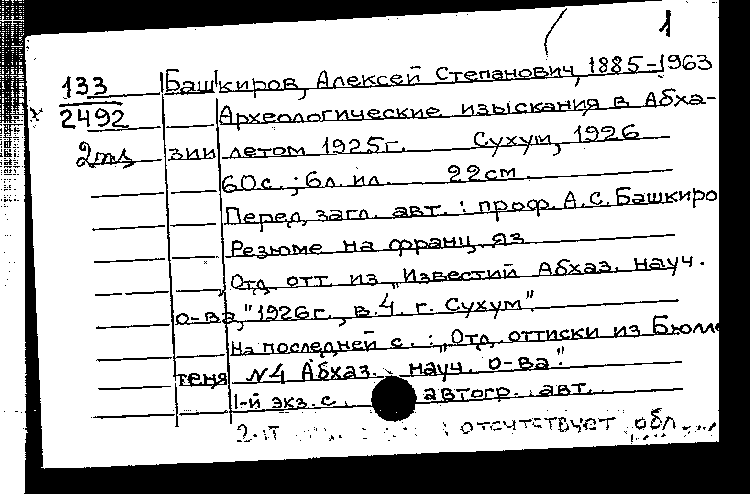 1
133 Башкиров, Алексей Степанович, 1885-1963
2492 Археологические изыскания в Абха-
2 экз зии летом 1925г. Сухум, 1926
60с.; 6л. ил. 22см
Перед загл. авт.: проф. А.С. Башкиро
Резюме на франц. яз
Отд. отт. из "Известий Абхаз. науч.
о-ва," 1926г., в. 4. г. Сухум".
На последней с.: "Отд. оттиски из Бюлле
теня №4 Абхаз. науч. о-ва".
1-й экз. с автогр. авт.
отсутствует обл